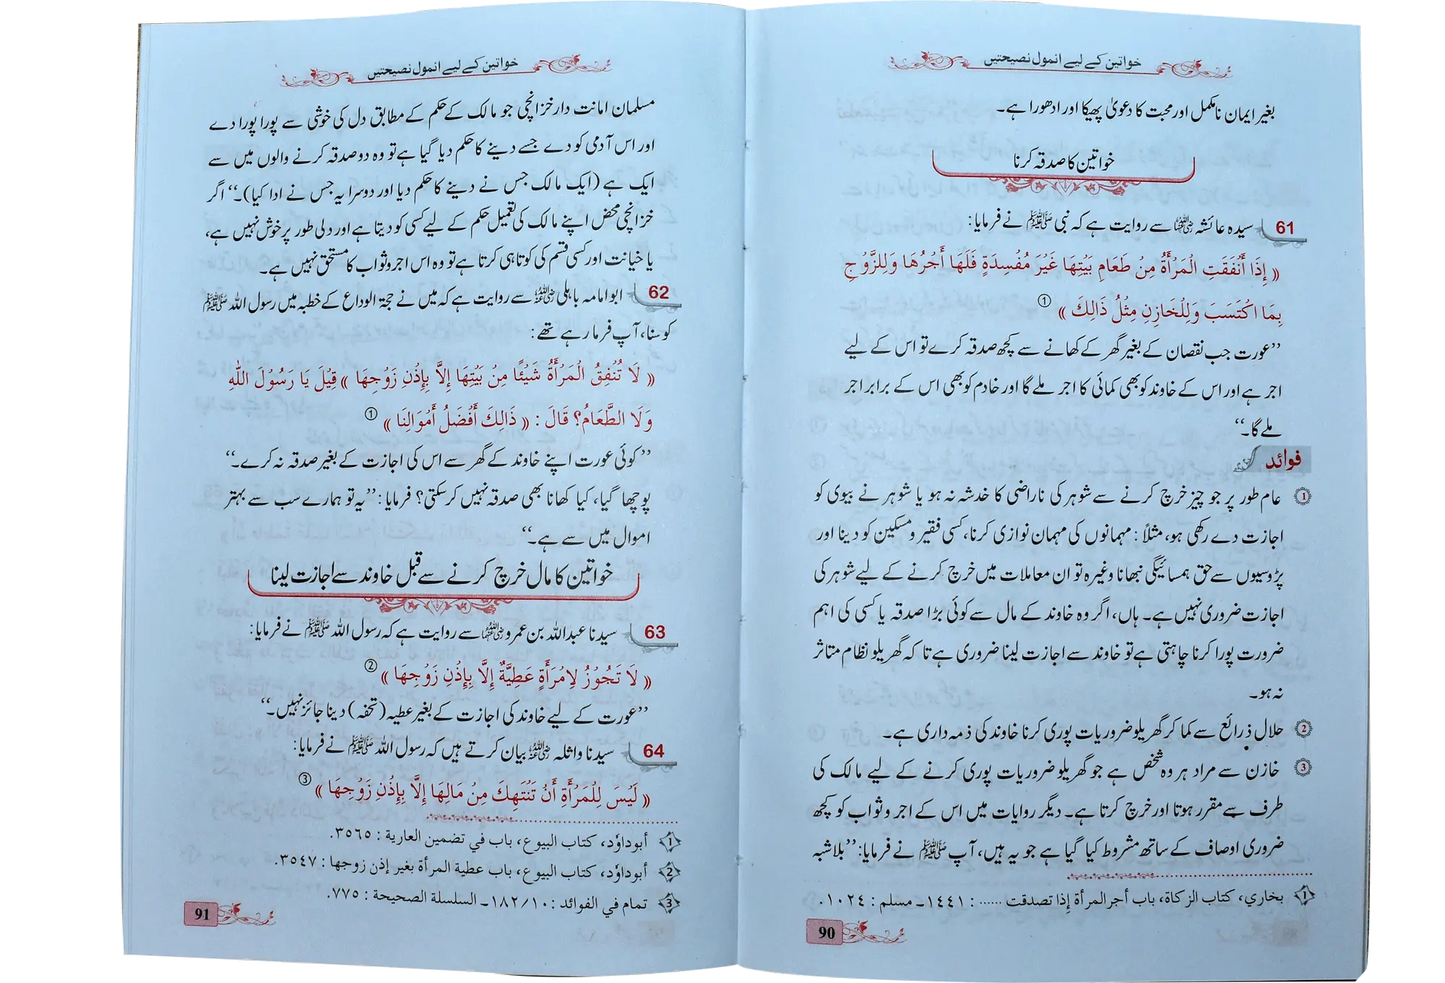 خواتین کے لیے انمول نصیحتیں
بغیر ایمان نامکمل اور محبت کا دعویٰ پھیکا اور ادھورا ہے۔
خواتین کا صدقہ کرنا
61 سیدہ عائشہ رضی اللہ عنہا سے روایت ہے کہ نبی ﷺ نے فرمایا:
« إِذَا أَنْفَقَتِ الْمَرْأَةُ مِنْ طَعَامِ بَيْتِهَا غَيْرَ مُفْسِدَةٍ فَلَهَا أَجْرُهَا وَلِلزَّوْجِ
بِمَا اكْتَسَبَ وَلِلْخَازِنِ مِثْلُ ذَالِكَ » ①
’’عورت جب نقصان کے بغیر گھر کے کھانے سے کچھ صدقہ کرے تو اس کے لیے
اجر ہے اور اس کے خاوند کو بھی کمائی کا اجر ملے گا اور خادم کو بھی اس کے برابر اجر
ملے گا۔‘‘
فوائد
① عام طور پر جو چیز خرچ کرنے سے شوہر کی ناراضی کا خدشہ نہ ہو یا شوہر نے بیوی کو
اجازت دے رکھی ہو، مثلاً: مہمانوں کی مہمان نوازی کرنا، کسی فقیر و مسکین کو دینا اور
پڑوسیوں سے حق ہمسائیگی نبھانا وغیرہ تو ان معاملات میں خرچ کرنے کے لیے شوہر کی
اجازت ضروری نہیں ہے۔ ہاں، اگر وہ خاوند کے مال سے کوئی بڑا صدقہ یا کسی کی اہم
ضرورت پورا کرنا چاہتی ہے تو خاوند سے اجازت لینا ضروری ہے تا کہ گھریلو نظام متاثر
نہ ہو۔
② حلال ذرائع سے کما کر گھریلو ضروریات پوری کرنا خاوند کی ذمہ داری ہے۔
③ خازن سے مراد ہر وہ شخص ہے جو گھریلو ضروریات پوری کرنے کے لیے مالک کی
طرف سے مقرر ہوتا اور خرچ کرتا ہے۔ دیگر روایات میں اس کے اجر و ثواب کو کچھ
ضروری اوصاف کے ساتھ مشروط کیا گیا ہے جو یہ ہیں، آپ ﷺ نے فرمایا: ’’بلاشبہ
① بخاري، کتاب الزکاة، باب أجر المرأة إذا تصدقت ...... : ١٤٤١۔ مسلم : ١٠٢٤.
90
خواتین کے لیے انمول نصیحتیں
مسلمان امانت دار خزانچی جو مالک کے حکم کے مطابق دل کی خوشی سے پورا پورا دے
اور اس آدمی کو دے جسے دینے کا حکم دیا گیا ہے تو وہ دو صدقہ کرنے والوں میں سے
ایک ہے (ایک مالک جس نے دینے کا حکم دیا اور دوسرا یہ جس نے ادا کیا)۔‘‘ اگر
خزانچی محض اپنے مالک کی تعمیل حکم کے لیے کسی کو دیتا ہے اور دلی طور پر خوش نہیں ہے،
یا خیانت اور کسی قسم کی کوتاہی کرتا ہے تو وہ اس اجر و ثواب کا مستحق نہیں ہے۔
62 ابو امامہ باہلی رضی اللہ عنہ سے روایت ہے کہ میں نے حجۃ الوداع کے خطبہ میں رسول اللہ ﷺ
کو سنا، آپ فرما رہے تھے:
« لَا تُنْفِقُ الْمَرْأَةُ شَيْئًا مِنْ بَيْتِهَا إِلَّا بِإِذْنِ زَوْجِهَا » قِيْلَ يَا رَسُوْلَ اللّٰهِ
وَلَا الطَّعَامُ؟ قَالَ : « ذَالِكَ أَفْضَلُ أَمْوَالِنَا » ①
’’کوئی عورت اپنے خاوند کے گھر سے اس کی اجازت کے بغیر صدقہ نہ کرے۔‘‘
پوچھا گیا، کیا کھانا بھی صدقہ نہیں کر سکتی؟ فرمایا: ’’یہ تو ہمارے سب سے بہتر
اموال میں سے ہے۔‘‘
خواتین کا مال خرچ کرنے سے قبل خاوند سے اجازت لینا
63 سیدنا عبداللہ بن عمرو رضی اللہ عنہما سے روایت ہے کہ رسول اللہ ﷺ نے فرمایا:
« لَا تَجُوْزُ لِامْرَأَةٍ عَطِيَّةٌ إِلَّا بِإِذْنِ زَوْجِهَا » ②
’’عورت کے لیے خاوند کی اجازت کے بغیر عطیہ (تحفہ) دینا جائز نہیں۔‘‘
64 سیدنا واثلہ رضی اللہ عنہ بیان کرتے ہیں کہ رسول اللہ ﷺ نے فرمایا:
« لَيْسَ لِلْمَرْأَةِ أَنْ تَنْتَهِكَ مِنْ مَالِهَا إِلَّا بِإِذْنِ زَوْجِهَا » ③
① أبوداوٗد، کتاب البیوع، باب في تضمین العاریة : ٣٥٦٥.
② أبوداوٗد، کتاب البیوع، باب عطیة المرأة بغیر إذن زوجها : ٣٥٤٧.
③ تمام في الفوائد : ١٨٢/١٠۔ السلسلة الصحیحة : ٧٧٥.
91